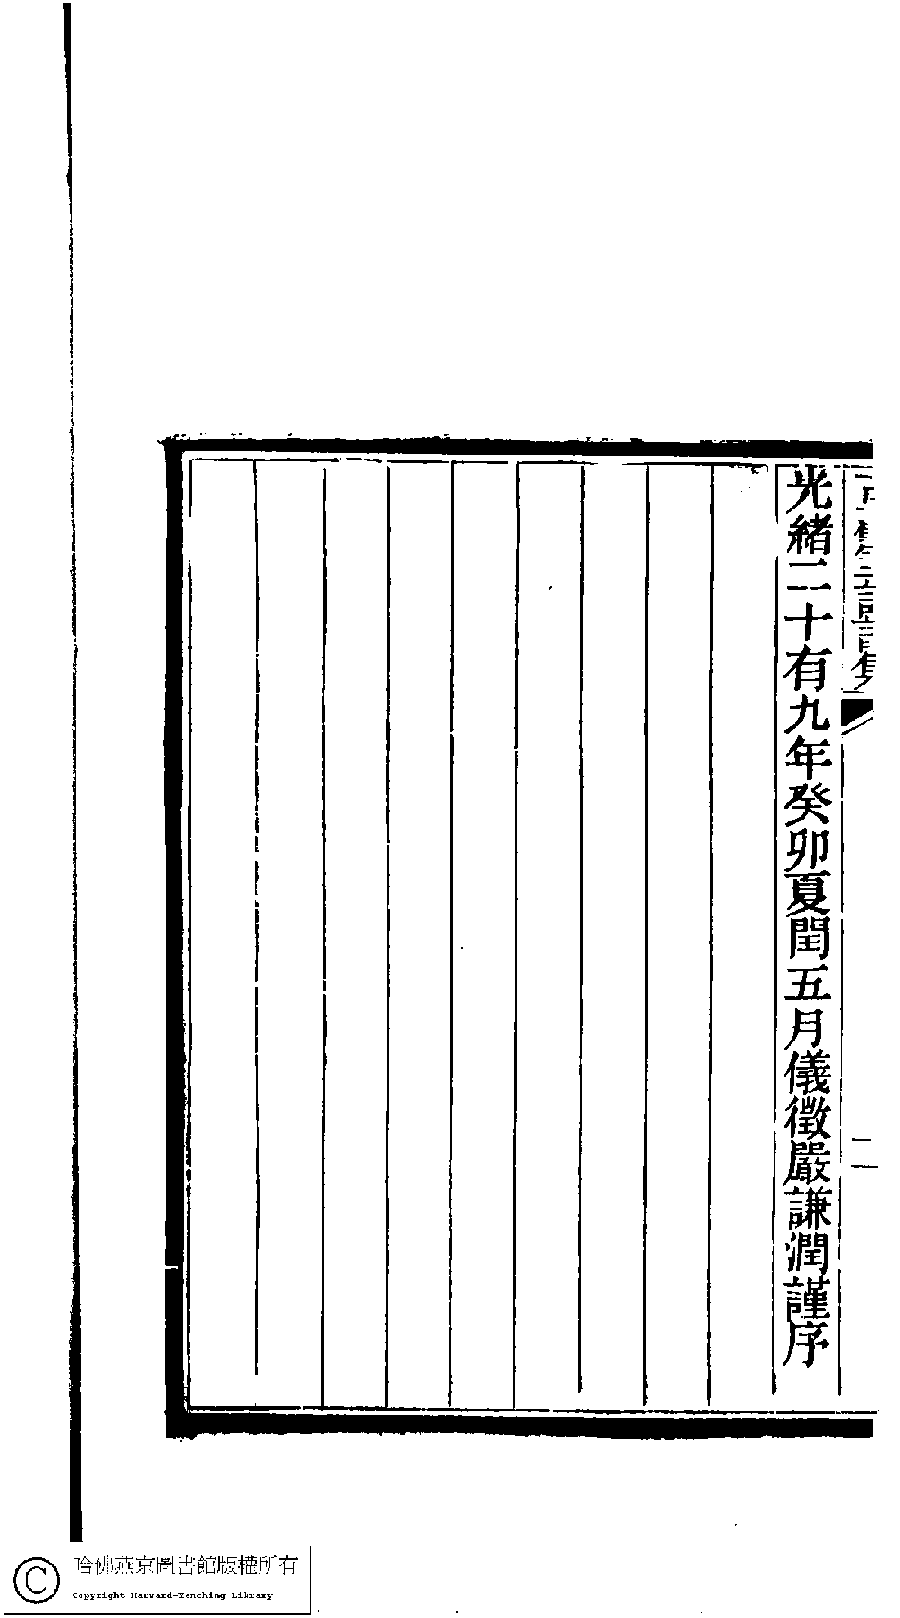 光緒二十有九年癸卯夏閏五月儀徵嚴謙潤謹序
二
哈佛燕京圖書館版權所有
Copyright Harvard-Yenching Library